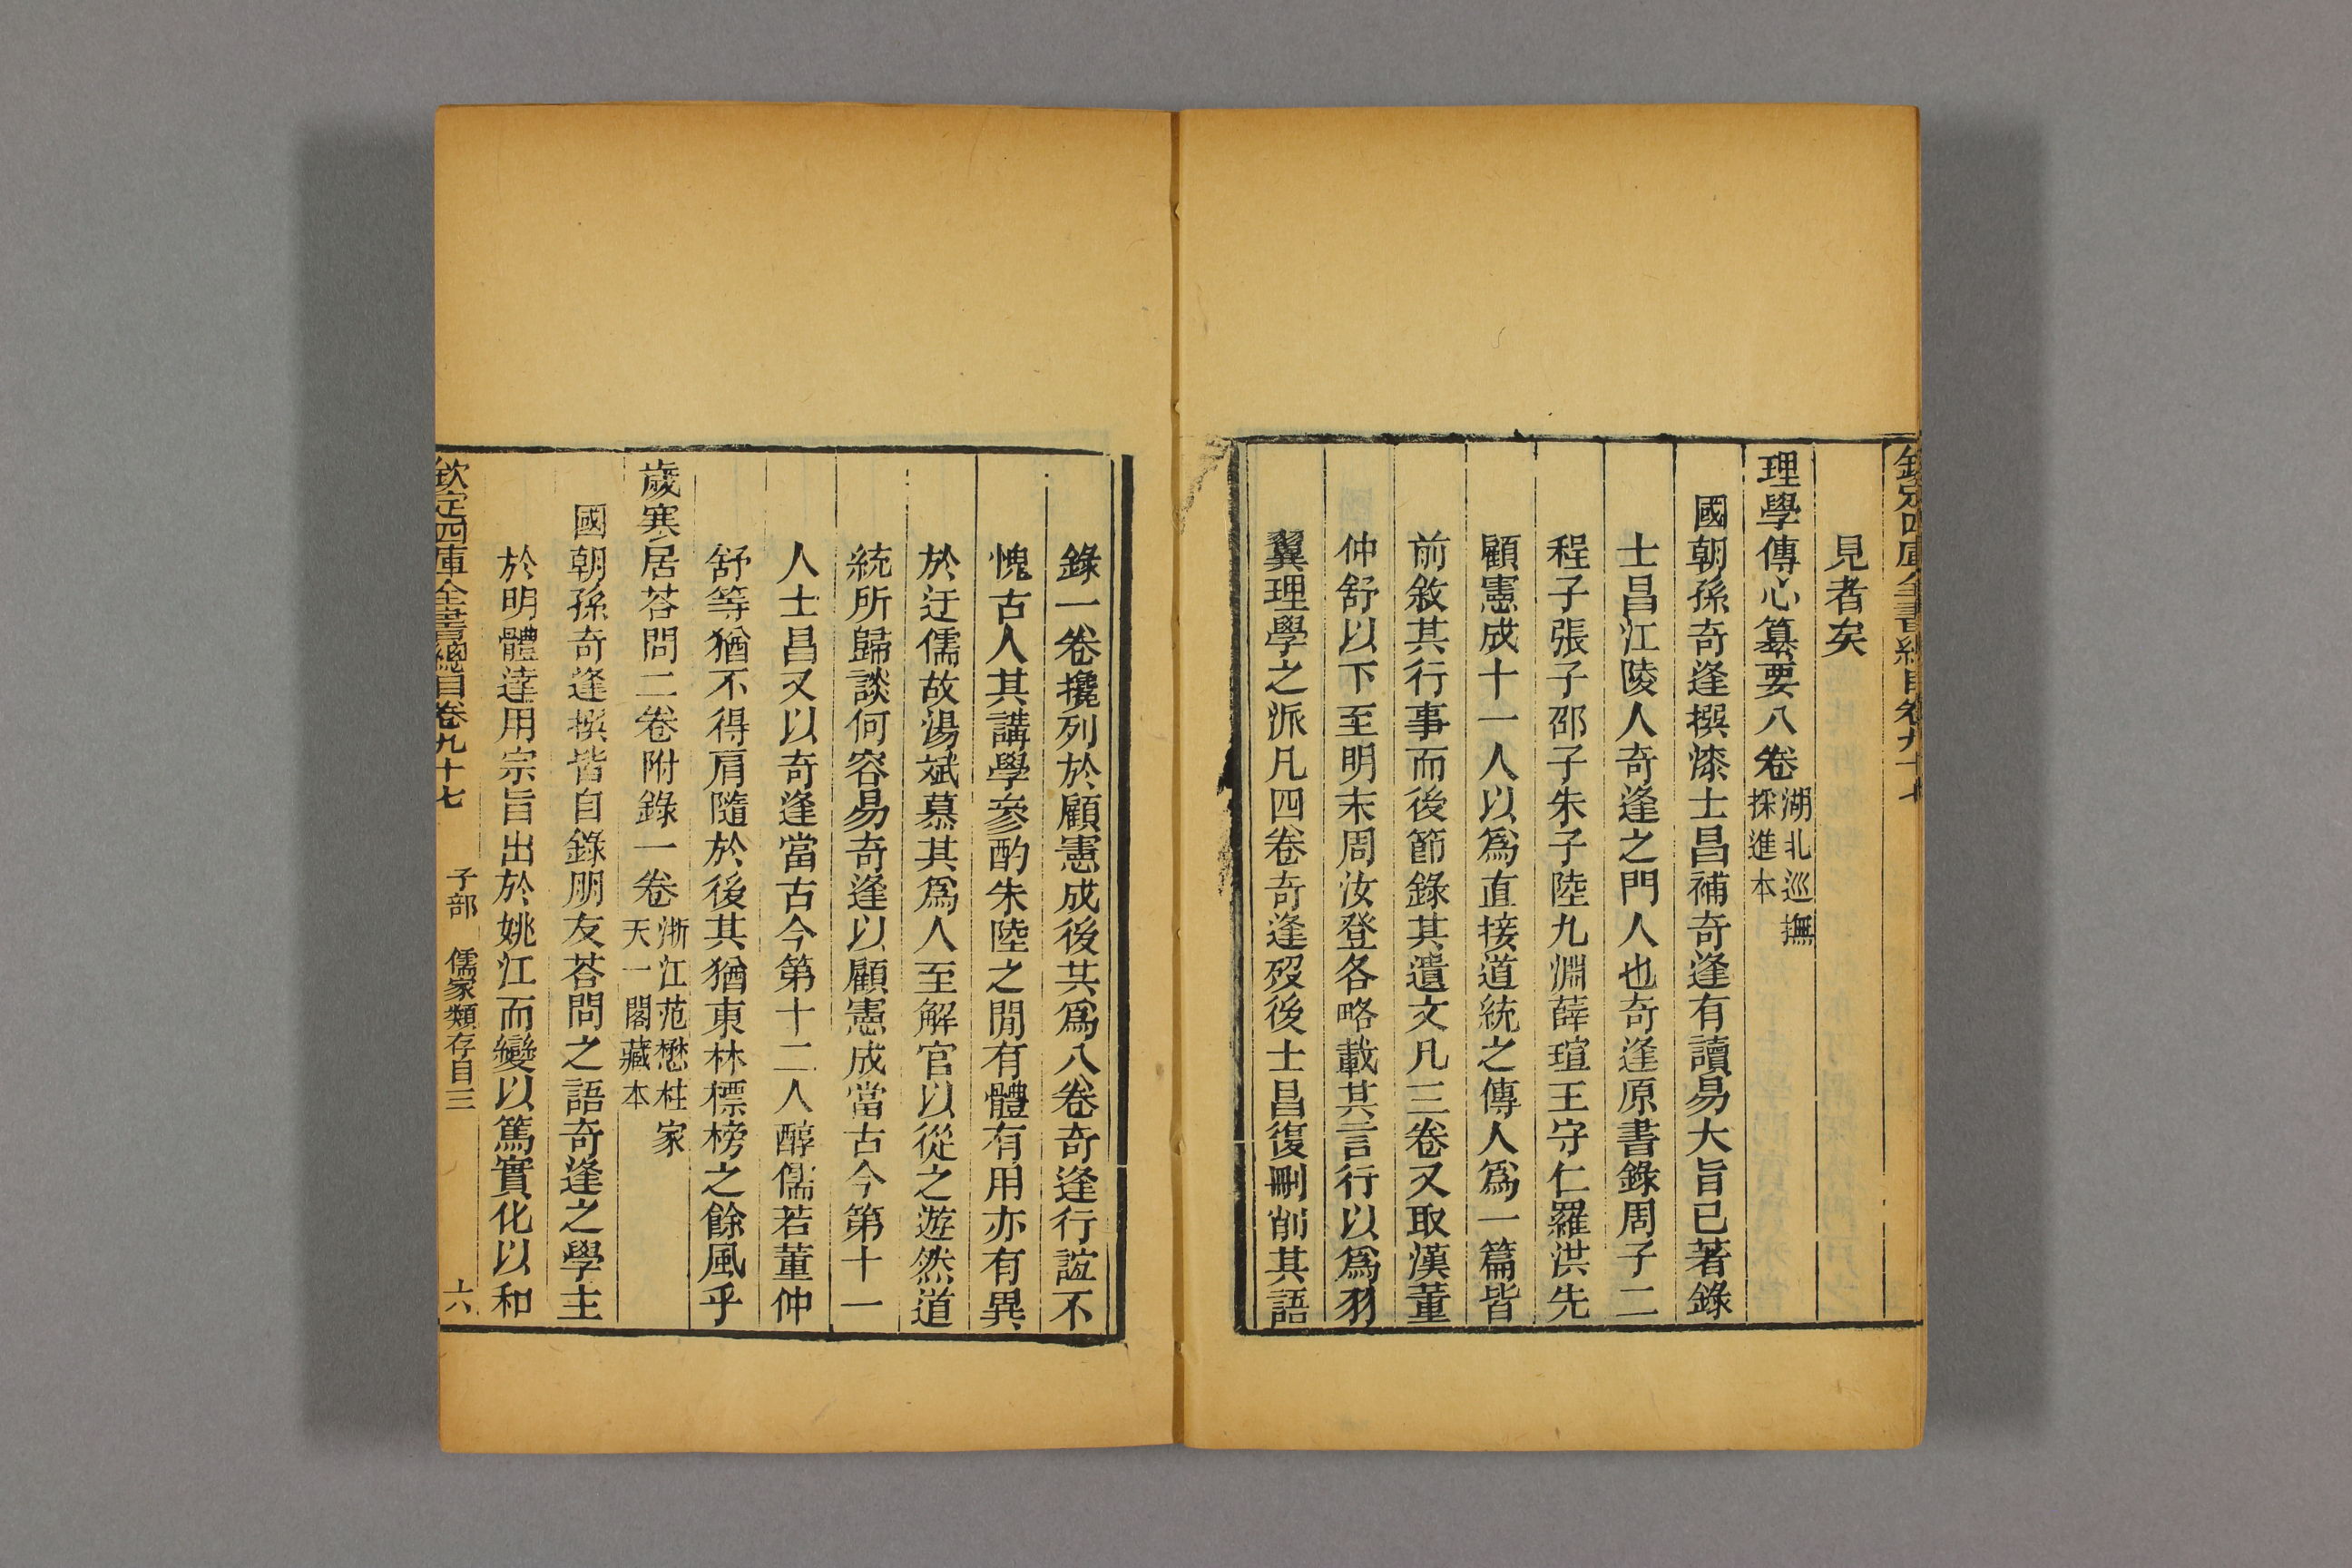 欽定四庫全書總目卷九十七
見者矣
理學傳心纂要八卷湖北巡撫採進本
國朝孫奇逢撰漆士昌補奇逢有讀易大旨已著錄
士昌江陵人奇逢之門人也奇逢原書錄周子二
程子張子邵子朱子陸九淵薛瑄王守仁羅洪先
顧憲成十一人以爲直接道統之傳人爲一篇皆
前敘其行事而後節錄其遺文凡三卷又取漢董
仲舒以下至明末周汝登各略載其言行以爲羽
翼理學之派凡四卷奇逢歿後士昌復刪削其語
錄一卷攙列於顧憲成後共爲八卷奇逢行誼不
愧古人其講學參酌朱陸之閒有體有用亦有異
於迂儒故湯斌慕其爲人至解官以從之遊然道
統所歸談何容易奇逢以顧憲成當古今第十一
人士昌又以奇逢當古今第十二人醇儒若董仲
舒等猶不得肩隨於後其猶東林標榜之餘風乎
歲寒居荅問二卷附錄一卷浙江范懋柱家天一閣藏本
國朝孫奇逢撰皆自錄朋友荅問之語奇逢之學主
於明體達用宗旨出於姚江而變以篤實化以和
欽定四庫全書總目卷九十七 子部 儒家類存目三 六